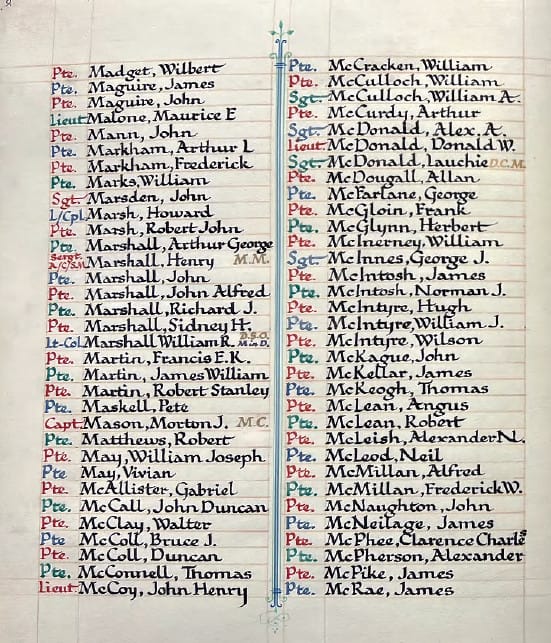 Pte. Madget, Wilbert
Pte. Maguire, James
Pte. Maguire, John
Lieut Malone, Maurice E
Pte. Mann, John
Pte. Markham, Arthur L
Pte. Markham, Frederick
Pte. Marks, William
Sgt. Marsden, John
L/Cpl. Marsh, Howard
Pte. Marsh, Robert John
Pte. Marshall, Arthur George
Sergt. A/C/S.M. Marshall, Henry M.M.
Pte. Marshall, John
Pte. Marshall, John Alfred
Pte. Marshall, Richard J.
Pte. Marshall, Sidney H.
Lt-Col. Marshall William R. D.S.O. M.in D.
Pte. Martin, Francis E.K.
Pte. Martin, James William
Pte. Martin, Robert Stanley
Pte. Maskell, Pete
Capt. Mason, Morton J. M.C.
Pte. Matthews, Robert
Pte. May, William Joseph
Pte May, Vivian
Pte. McAllister, Gabriel
Pte. McCall, John Duncan
Pte. McClay, Walter
Pte McColl, Bruce J.
Pte. McColl, Duncan
Pte. McConnell, Thomas
Lieut McCoy, John Henry
Pte. McCracken, William
Pte. McCulloch, William
Sgt. McCulloch, William A.
Pte. McCurdy, Arthur
Sgt. McDonald, Alex. A.
Lieut. McDonald, Donald W.
Sgt. McDonald, Lauchie D.C.M.
Pte. McDougall, Allan
Pte. McFarlane, George
Pte. McGloin, Frank
Pte. McGlynn, Herbert
Pte. McInerney, William
Sgt. McInnes, George J.
Pte. McIntosh, James
Pte. McIntosh, Norman J.
Pte. McIntyre, Hugh
Pte. McIntyre, William J.
Pte. McIntyre, Wilson
Pte. McKague, John
Pte. McKellar, James
Pte. McKeogh, Thomas
Pte. McLean, Angus
Pte. McLean, Robert
Pte. McLeish, Alexander N.
Pte. McLeod, Neil
Pte. McMillan, Alfred
Pte. McMillan, Frederick W.
Pte. McNaughton, John
Pte. McNeilage, James
Pte. McPhee, Clarence Charles
Pte. McPherson, Alexander
Pte. McPike, James
Pte. McRae, James